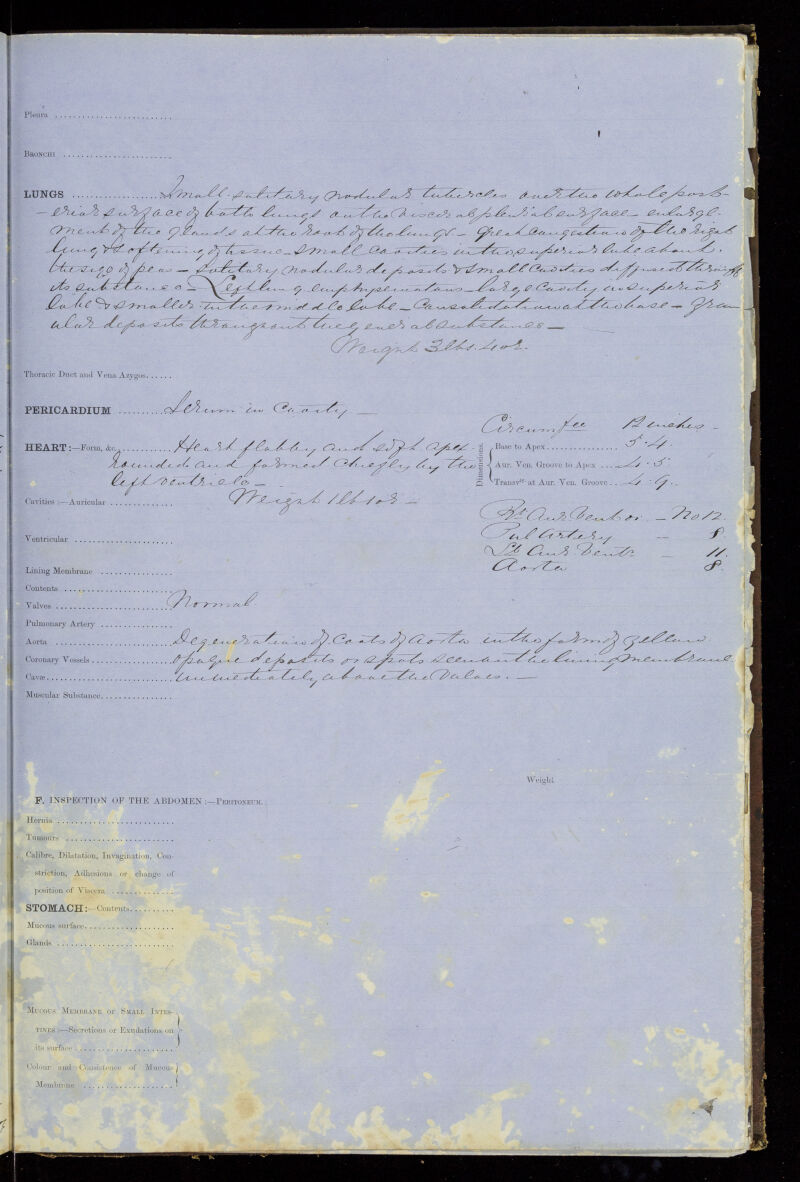 Pleura
Bronchi
LUNGS Small solitary nodular tubercles over the whole post-
-erior surface of both lungs on the visceral pleural surface - enlarge-
ment of the glands at the root of the lungs - great congestion of the right
lung & softening of tissue - small cavities in the superior lobe about
the size of peas - solitary nodular deposits & small cavities diffused through
its substance - Left lung emphysematous - large cavity in superior
lobe & smaller in the middle lobe - consolidation at the base - gran
ular deposits throughout the general substance -
Weight 3 lbs. 4 oz.
Thoracic Duct and Vena Azygos
PERICARDIUM Serum in Cavity -
Circumfce 12 inches -
HEART:—Form, &c. Heart flabby and soft apex
rounded and formed chiefly by the
left ventricle -
Dimensions.
Base to Apex 5.4.
Aur. Ven. Groove to Apex 4.5.
Transvse at Aur. Ven. Groove 4.9.
Cavities :—Auricular Weight 1 lb 1 oz -
Rt Aur Vent or - No 12.
Ventricular
Pul Artery - 8.
Lt Aur Ventr - 11.
Lining Membrane
Aorta 8.
Contents
Valves Normal
Pulmonary Artery
Aorta Degeneration of Coats of Aorta in the form of yellow
Coronary Vessels opaque deposits or spots seen on the lining membrane
Cavæ immediately above the Valves. -
Muscular Substance
Weight
F. INSPECTION OF THE ABDOMEN :—Peritoneum.
Hernia
Tumours
Calibre, Dilatation, Invagination, Con-
striction, Adhesions or change of
position of Viscera
STOMACH:—Contents
Mucous surface
Glands
Mucous Membrane of Small Intes-
tines :—Secretions or Exudations on
its surface
Colour and Consistence of Mucous
Membrane